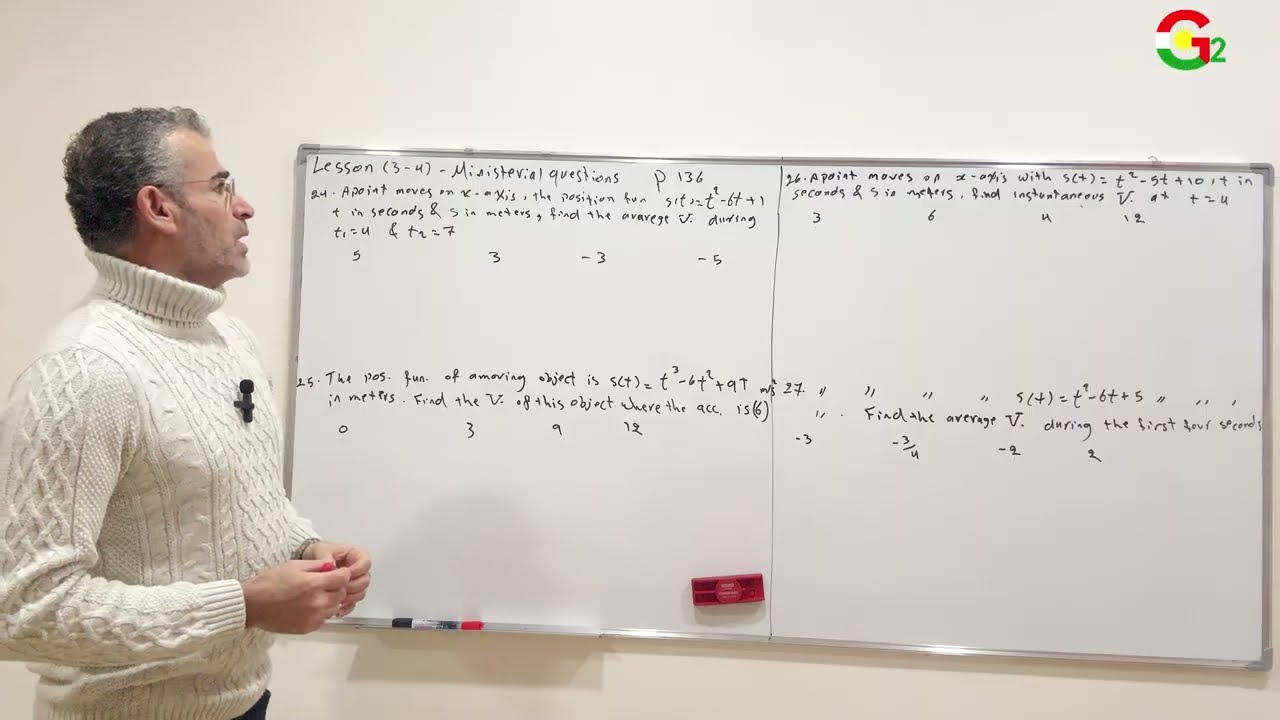 G2
Lesson (3-4) - Ministerial questions P 136
24. Apoint moves on x-axis, the position fun s(t)=t²-6t+1
t in seconds & S in meters, find the avarege V. during
t₁=4 & t₂=7
5 3 -3 -5
25. The pos. fun. of amoving object is s(t)=t³-6t²+9t
in meters. Find the V. of this object where the acc. is (6) m/s²
0 3 9 12
26. Apoint moves on x-axis with s(t)=t²-5t+10, t in
seconds & S in meters, find instantaneous V. at t=4
3 6 4 12
27 〃 〃 〃 〃 s(t)=t²-6t+5 〃 〃 〃
〃. Find the average V. during the first four seconds
-3 -3/4 -2 2